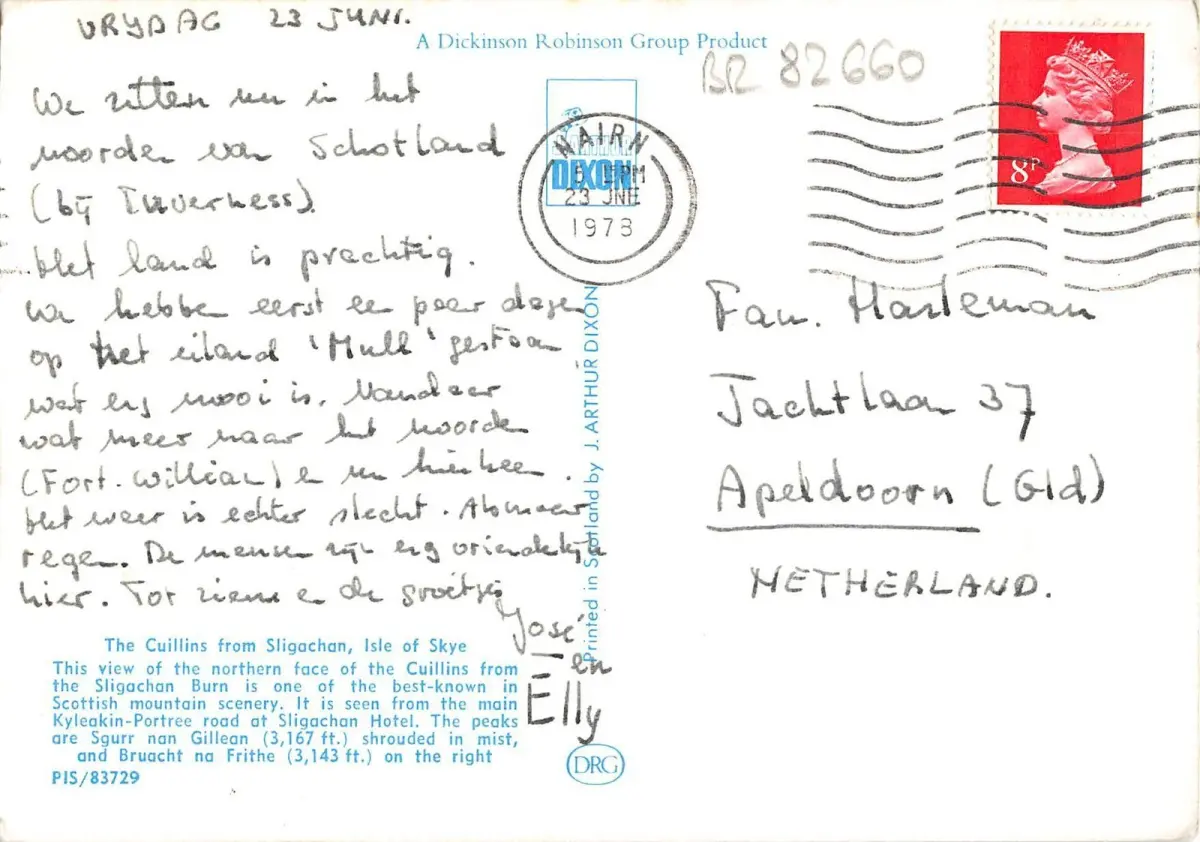 VRYDAG 23 JUNI.
We zitten nu in het
noorden van Schotland
(bij Inverness).
Het land is prachtig.
We hebben eerst een paar dagen
op het eiland 'Mull' gestaan
wat erg mooi is. Vandaar
wat meer naar het noorden
(Fort. William) en nu hierheen.
Het weer is echter slecht. Alsmaar
regen. De mensen zijn erg vriendelijk
hier. Tot ziens en de groetjes
José
en
Elly
The Cuillins from Sligachan, Isle of Skye
This view of the northern face of the Cuillins from
the Sligachan Burn is one of the best-known in
Scottish mountain scenery. It is seen from the main
Kyleakin-Portree road at Sligachan Hotel. The peaks
are Sgurr nan Gillean (3,167 ft.) shrouded in mist,
and Bruacht na Frithe (3,143 ft.) on the right
PIS/83729
A Dickinson Robinson Group Product
DIXON
NAIRN
23 JNE
1978
Printed in Scotland by J. ARTHUR DIXON
DRG
BR 82660
8P
Fam. Harleman
Jachtlaan 37
Apeldoorn (Gld)
NETHERLAND.